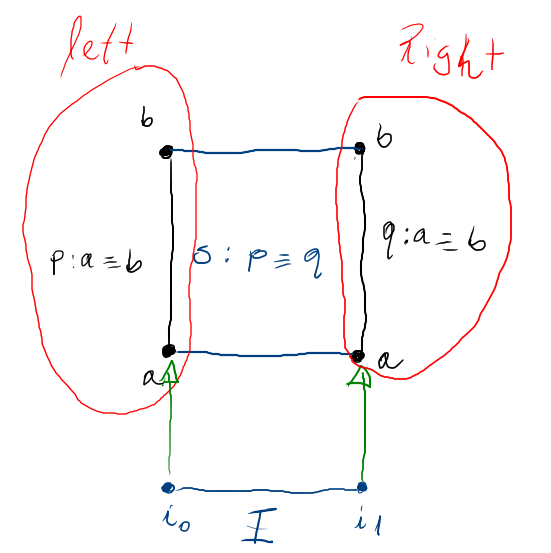 left
Right
b
b
p : a ≡ b
s : p ≡ q
q : a ≡ b
a
a
i₀
I
i₁